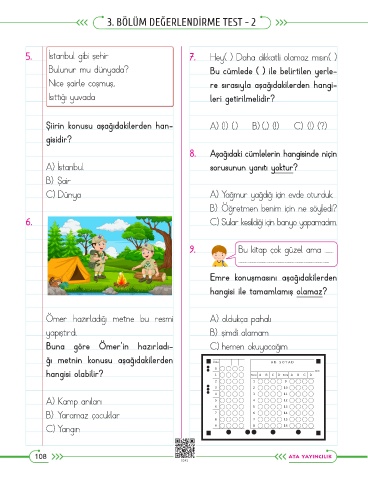 3. BÖLÜM DEĞERLENDİRME TEST - 2
5.
İstanbul gibi şehir
Bulunur mu dünyada?
Nice şairle coşmuş,
Isıttığı yuvada
Şiirin konusu aşağıdakilerden han-
gisidir?
A) İstanbul
B) Şair
C) Dünya
6.
Ömer hazırladığı metne bu resmi
yapıştırdı.
Buna göre Ömer'in hazırladı-
ğı metnin konusu aşağıdakilerden
hangisi olabilir?
A) Kamp anıları
B) Yaramaz çocuklar
C) Yangın
7. Hey( ) Daha dikkatli olamaz mısın( )
Bu cümlede ( ) ile belirtilen yerle-
re sırasıyla aşağıdakilerden hangi-
leri getirilmelidir?
A) (!) (.) B) (.) (!) C) (!) (?)
8. Aşağıdaki cümlelerin hangisinde niçin
sorusunun yanıtı yoktur?
A) Yağmur yağdığı için evde oturduk.
B) Öğretmen benim için ne söyledi?
C) Sular kesildiği için banyo yapamadım.
9.
Bu kitap çok güzel ama .....
Emre konuşmasını aşağıdakilerden
hangisi ile tamamlamış olamaz?
A) oldukça pahalı
B) şimdi alamam
C) hemen okuyacağım
AD SOYAD
A B C D
A B C D
1
2
3
4
5
6
7
8
9
10
11
12
13
14
15
16
108
ATA YAYINCILIK